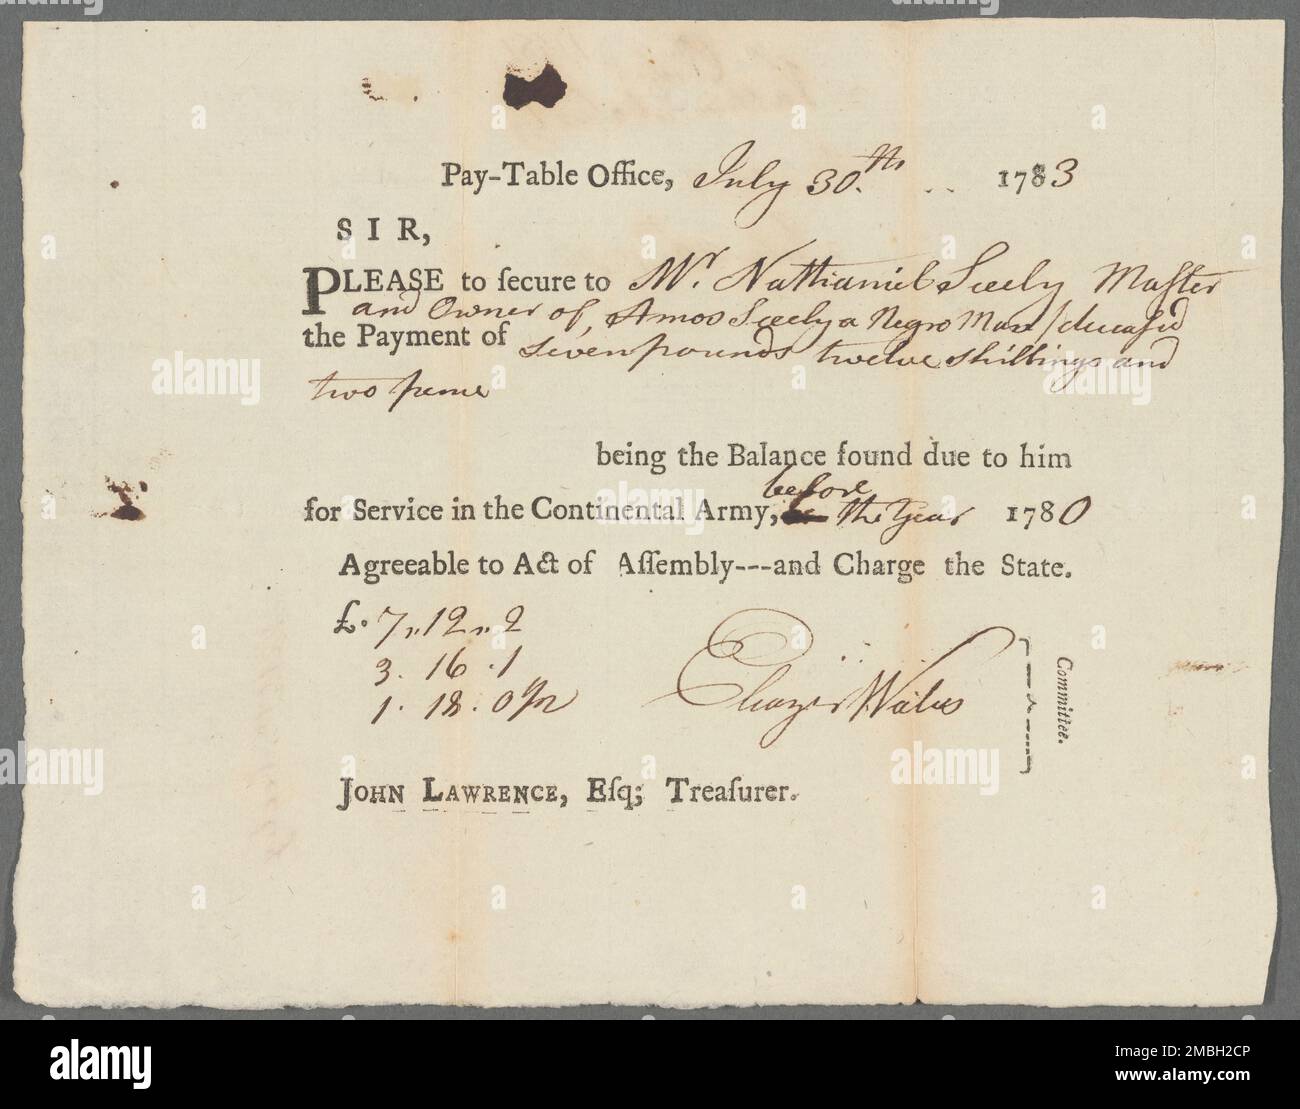 Pay-Table Office, July 30.th 1783
SIR,
PLEASE to ſecure to Mr. Nathaniel Seely Maſter
and Owner of, Amos Seely a Negro Man / deceaſd
the Payment of Seven pounds twelve shillings and
two pence
being the Balance found due to him
before
for Service in the Continental Army, the Year 1780
Agreeable to Act of Aſſembly---and Charge the State.
£. 7,,12,,2
3. 16 .1
1. 18. 0
Eleazer Wales
Committee.
JOHN LAWRENCE, Eſq; Treaſurer.
alamy
Image ID: 2MBH2CP
www.alamy.com